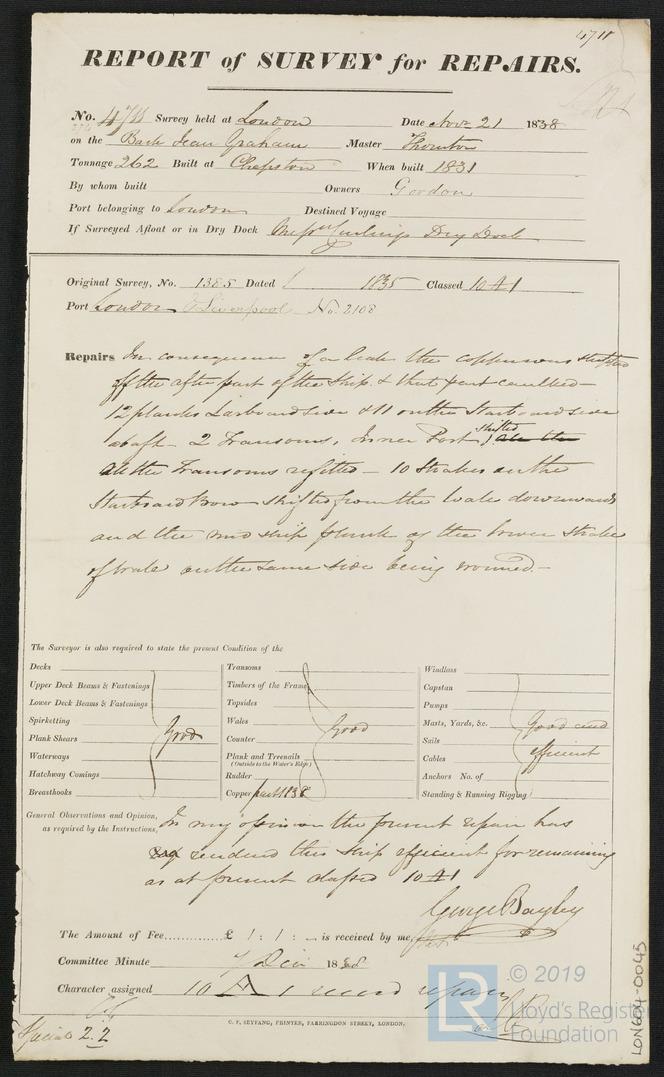 4711
REPORT of SURVEY for REPAIRS.
No. 4711 Survey held at London Date Novr 21 1838
on the Bark Jean Graham Master Thornton
Tonnage 262 Built at Chepstow When built 1831
By whom built Owners Gordon
Port belonging to London Destined Voyage
If Surveyed Afloat or in Dry Dock Messrs Dry Dock
Original Survey, No. 1385 Dated 1835 Classed 10 A 1
Port London & Liverpool No. 2108
Repairs In consequence of a leak the copper was stripped
off the after part of the ship & that part caulked -
12 planks Larboard side & 11 on the Starboard side
abaft - 2 Transoms, Inner Post shifted
all the Transoms refitted - 10 Strakes on the
Starboard Bow shifted from the wale downwards
and the mid ship plank of the lower Strake
of wale on the same side being -
The Surveyor is also required to state the present Condition of the
Decks
Upper Deck Beams & Fastenings
Lower Deck Beams & Fastenings
Spirketting
Plank Shears Good
Waterways
Hatchway Comings
Breasthooks
Transoms
Timbers of the Frame
Topsides
Wales Good
Counter
Plank and Treenails
(Outside to the Water's Edge)
Rudder
Copper part 1838
Windlass
Capstan
Pumps
Masts, Yards, &c. Good and
Sails efficient
Cables
Anchors No. of
Standing & Running Rigging
General Observations and Opinion, In my opinion the present repair has
as required by the Instructions, rendered this ship efficient for remaining
as at present classed 10 A 1
George Bayley
The Amount of Fee.............. £ 1 : 1 : - is received by me
Committee Minute 7 Decr 1838
Character assigned 10 A 1 record repairs
C. F. SEYFANG, PRINTER, FARRINGDON STREET, LONDON.
Special 2.2
LR © 2019
Lloyd's Register
Foundation
LON604-0045